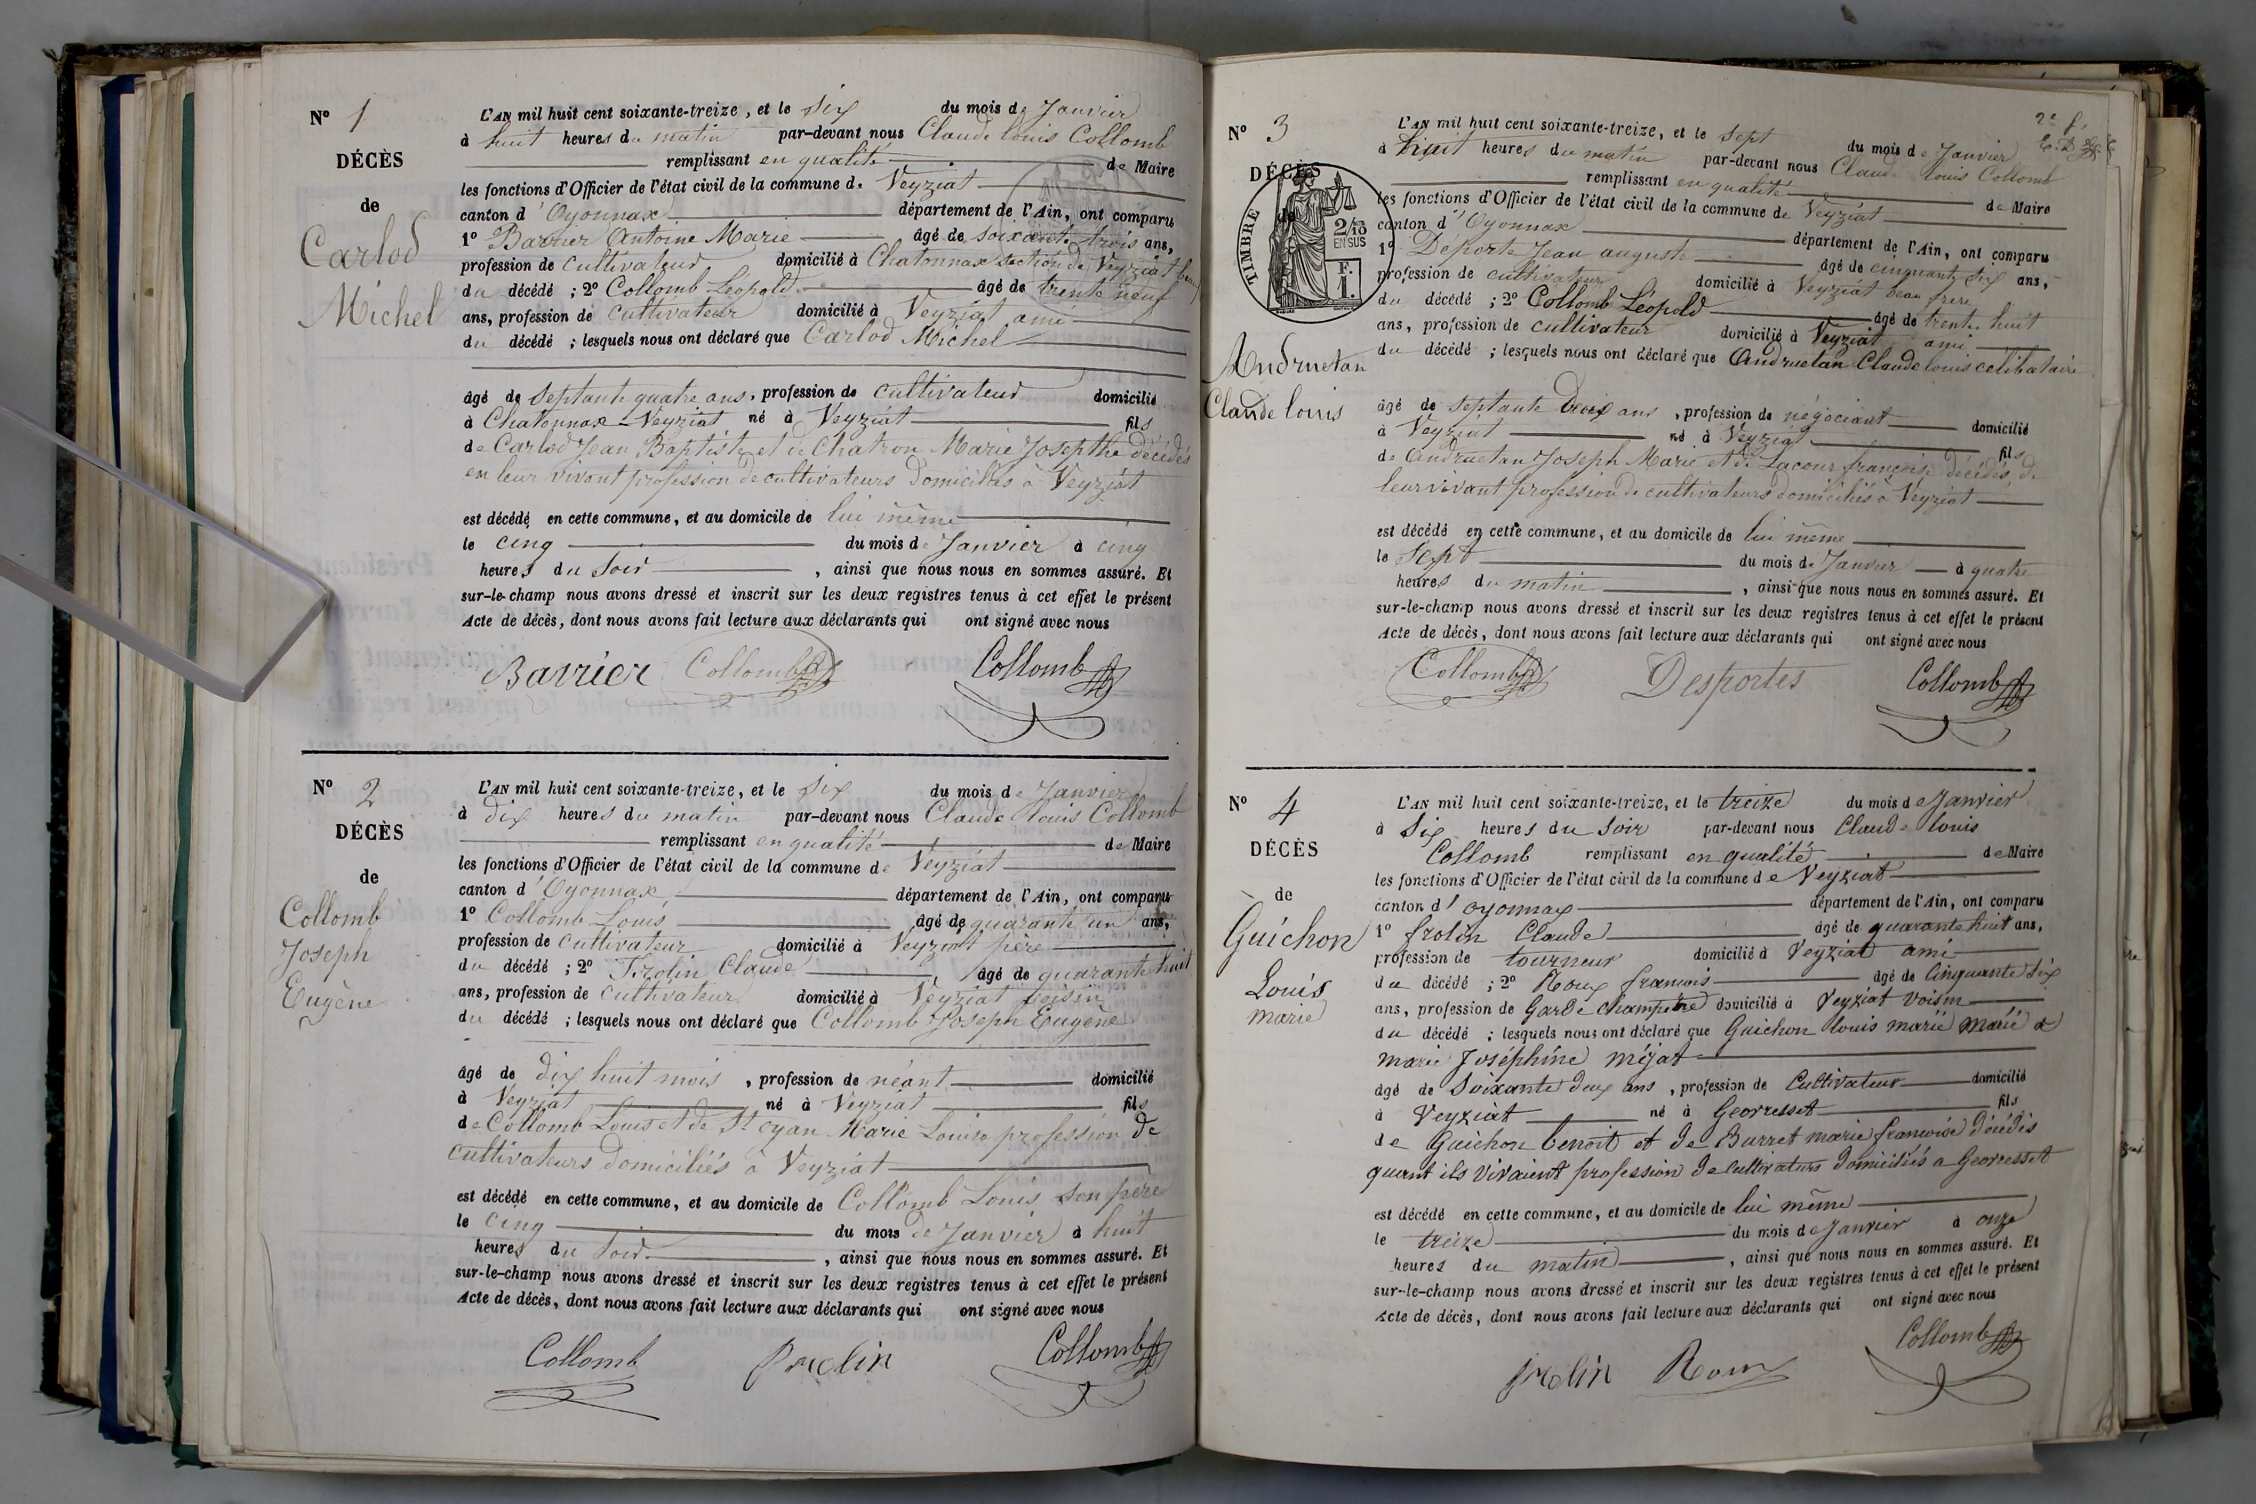 N° 1
DÉCÈS
de
Carlod
Michel
L'AN mil huit cent soixante-treize, et le Six du mois de Janvier
à huit heures du matin par-devant nous Claude Louis Collomb
remplissant en qualité de Maire
les fonctions d'Officier de l'état civil de la commune de Veyziat
canton d'Oyonnax département de l'Ain, ont comparu
1° Barrier Antoine Marie âgé de soixante trois ans,
profession de cultivateur domicilié à Chatonnax section de Veyziat
du décédé ; 2° Collomb Léopold âgé de trente neuf
ans, profession de cultivateur domicilié à Veyziat ami
du décédé ; lesquels nous ont déclaré que Carlod Michel
âgé de septante quatre ans, profession de cultivateur domicilié
à Chatonnax Veyziat né à Veyziat fils
de Carlod Jean Baptiste et de Chatron Marie Josepthe décédés
en leur vivant profession de cultivateurs domiciliés à Veyziat
est décédé en cette commune, et au domicile de lui même
le cinq du mois de Janvier à cinq
heures du soir, ainsi que nous nous en sommes assuré. Et
sur-le-champ nous avons dressé et inscrit sur les deux registres tenus à cet effet le présent
Acte de décès, dont nous avons fait lecture aux déclarants qui ont signé avec nous
Barrier Collomb Collomb
N° 2
DÉCÈS
de
Collomb
Joseph
Eugène
L'AN mil huit cent soixante-treize, et le six du mois de Janvier
à dix heures du matin par-devant nous Claude Louis Collomb
remplissant en qualité de Maire
les fonctions d'Officier de l'état civil de la commune de Veyziat
canton d'Oyonnax département de l'Ain, ont comparu
1° Collomb Louis âgé de quarante un ans,
profession de cultivateur domicilié à Veyziat père
du décédé ; 2° Frolin Claude âgé de quarante huit
ans, profession de cultivateur domicilié à Veyziat voisin
du décédé ; lesquels nous ont déclaré que Collomb Joseph Eugène
âgé de dix huit mois, profession de néant domicilié
à Veyziat né à Veyziat fils
de Collomb Louis et de St oyan Marie Louise profession de
cultivateurs domiciliés à Veyziat
est décédé en cette commune, et au domicile de Collomb Louis son père
le cinq du mois de Janvier à huit
heures du soir, ainsi que nous nous en sommes assuré. Et
sur-le-champ nous avons dressé et inscrit sur les deux registres tenus à cet effet le présent
Acte de décès, dont nous avons fait lecture aux déclarants qui ont signé avec nous
Collomb frolin Collomb
N° 3
DÉCÈS
de
TIMBRE
2/10
EN SUS
F.
1.
Andruetan
Claude louis
2e f.
L'AN mil huit cent soixante-treize, et le sept du mois de Janvier
à huit heures du matin par-devant nous Claude Louis Collomb
remplissant en qualité de Maire
les fonctions d'Officier de l'état civil de la commune de Veyziat
canton d'Oyonnax département de l'Ain, ont comparu
1° Déporte Jean auguste âgé de cinquante six ans,
profession de cultivateur domicilié à Veyziat beau frère
du décédé ; 2° Collomb Léopold âgé de trente huit
ans, profession de cultivateur domicilié à Veyziat ami
du décédé ; lesquels nous ont déclaré que Andruetan Claude louis célibataire
âgé de septante deux ans, profession de négociant domicilié
à Veyziat né à Veyziat fils
de Andruetan Joseph Marie et de Lacour françoise décédés, de
leur vivant profession de cultivateurs domiciliés à Veyziat
est décédé en cette commune, et au domicile de lui même
le Sept du mois de Janvier à quatre
heures du matin, ainsi que nous nous en sommes assuré. Et
sur-le-champ nous avons dressé et inscrit sur les deux registres tenus à cet effet le présent
Acte de décès, dont nous avons fait lecture aux déclarants qui ont signé avec nous
Collomb Desportes Collomb
N° 4
DÉCÈS
de
Guichon
Louis
marie
L'AN mil huit cent soixante-treize, et le treize du mois de Janvier
à Six heures du Soir par-devant nous Claude louis
Collomb remplissant en qualité de Maire
les fonctions d'Officier de l'état civil de la commune de Veyziat
canton d'oyonnax département de l'Ain, ont comparu
1° frolin Claude âgé de quarante huit ans,
profession de tourneur domicilié à Veyziat ami
du décédé ; 2° Roux francois âgé de Cinquante six
ans, profession de Garde champêtre domicilié à Veyziat voisin
du décédé ; lesquels nous ont déclaré que Guichon louis marie marié a
marie Joséphine méjat
âgé de Soixante deux ans, profession de Cultivateur domicilié
à Veyziat né à Georresset fils
de Guichon benoit et de Burret marie francoise décédés
quant ils vivaient profession de cultivateurs domiciliés a Georresset
est décédé en cette commune, et au domicile de lui même
le treize du mois de Janvier à onze
heures du matin, ainsi que nous nous en sommes assuré. Et
sur-le-champ nous avons dressé et inscrit sur les deux registres tenus à cet effet le présent
Acte de décès, dont nous avons fait lecture aux déclarants qui ont signé avec nous
frolin Roux Collomb